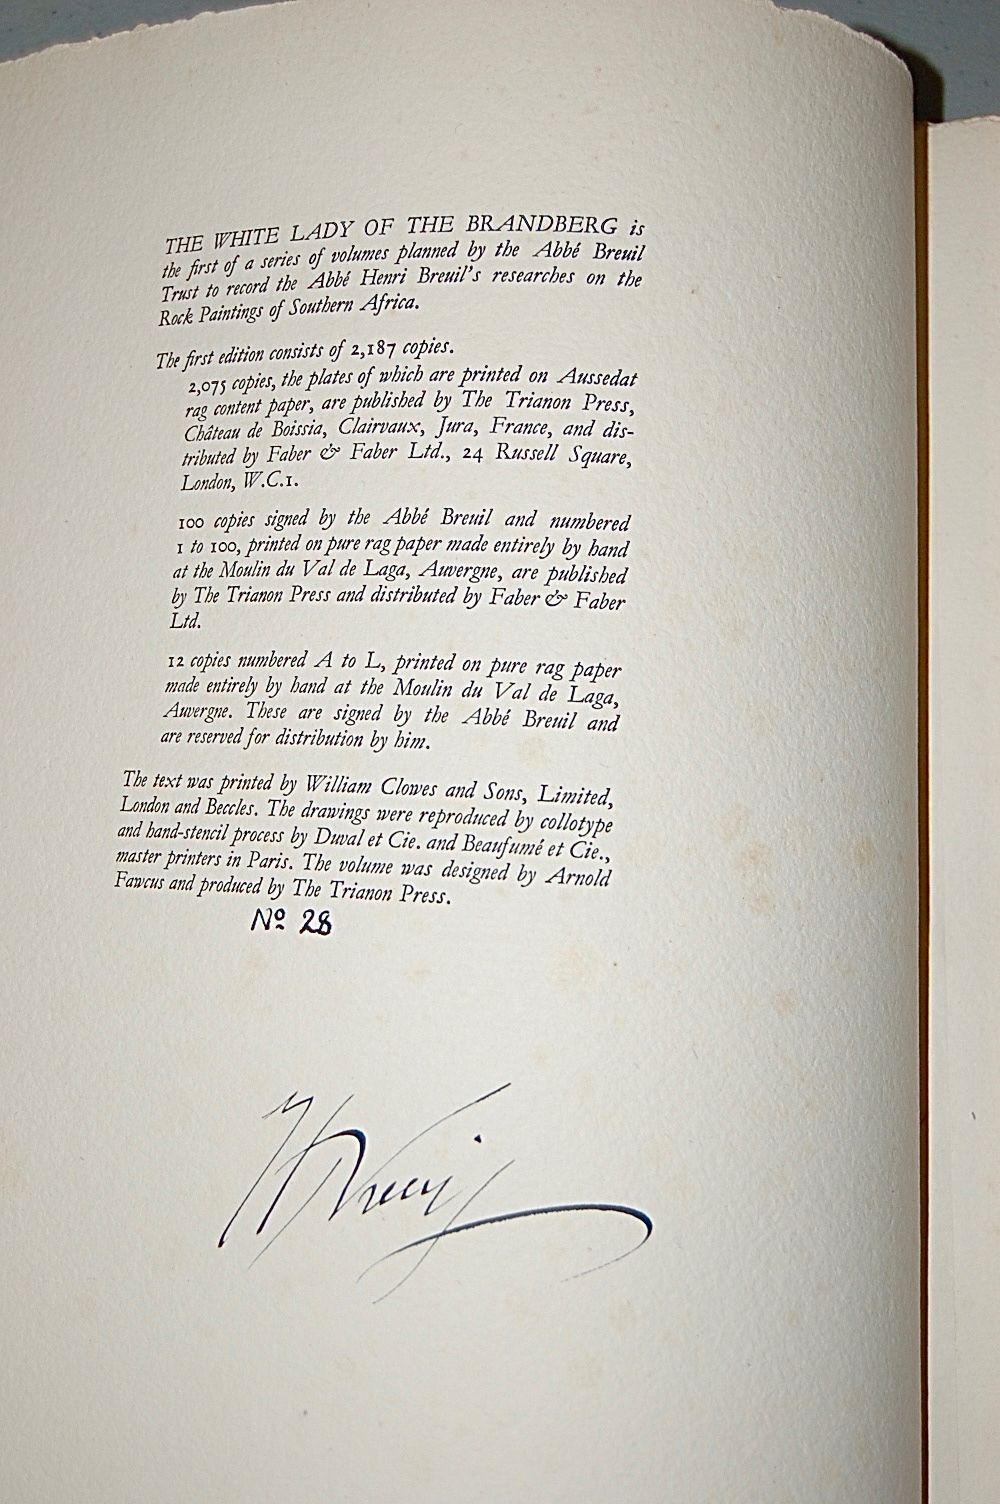 THE WHITE LADY OF THE BRANDBERG is
the first of a series of volumes planned by the Abbé Breuil
Trust to record the Abbé Henri Breuil's researches on the
Rock Paintings of Southern Africa.
The first edition consists of 2,187 copies.
2,075 copies, the plates of which are printed on Aussedat
rag content paper, are published by The Trianon Press,
Château de Boissia, Clairvaux, Jura, France, and dis-
tributed by Faber & Faber Ltd., 24 Russell Square,
London, W.C.1.
100 copies signed by the Abbé Breuil and numbered
1 to 100, printed on pure rag paper made entirely by hand
at the Moulin du Val de Laga, Auvergne, are published
by The Trianon Press and distributed by Faber & Faber
Ltd.
12 copies numbered A to L, printed on pure rag paper
made entirely by hand at the Moulin du Val de Laga,
Auvergne. These are signed by the Abbé Breuil and
are reserved for distribution by him.
The text was printed by William Clowes and Sons, Limited,
London and Beccles. The drawings were reproduced by collotype
and hand-stencil process by Duval et Cie. and Beaufumé et Cie.,
master printers in Paris. The volume was designed by Arnold
Fawcus and produced by The Trianon Press.
Nº 28
H Breuil